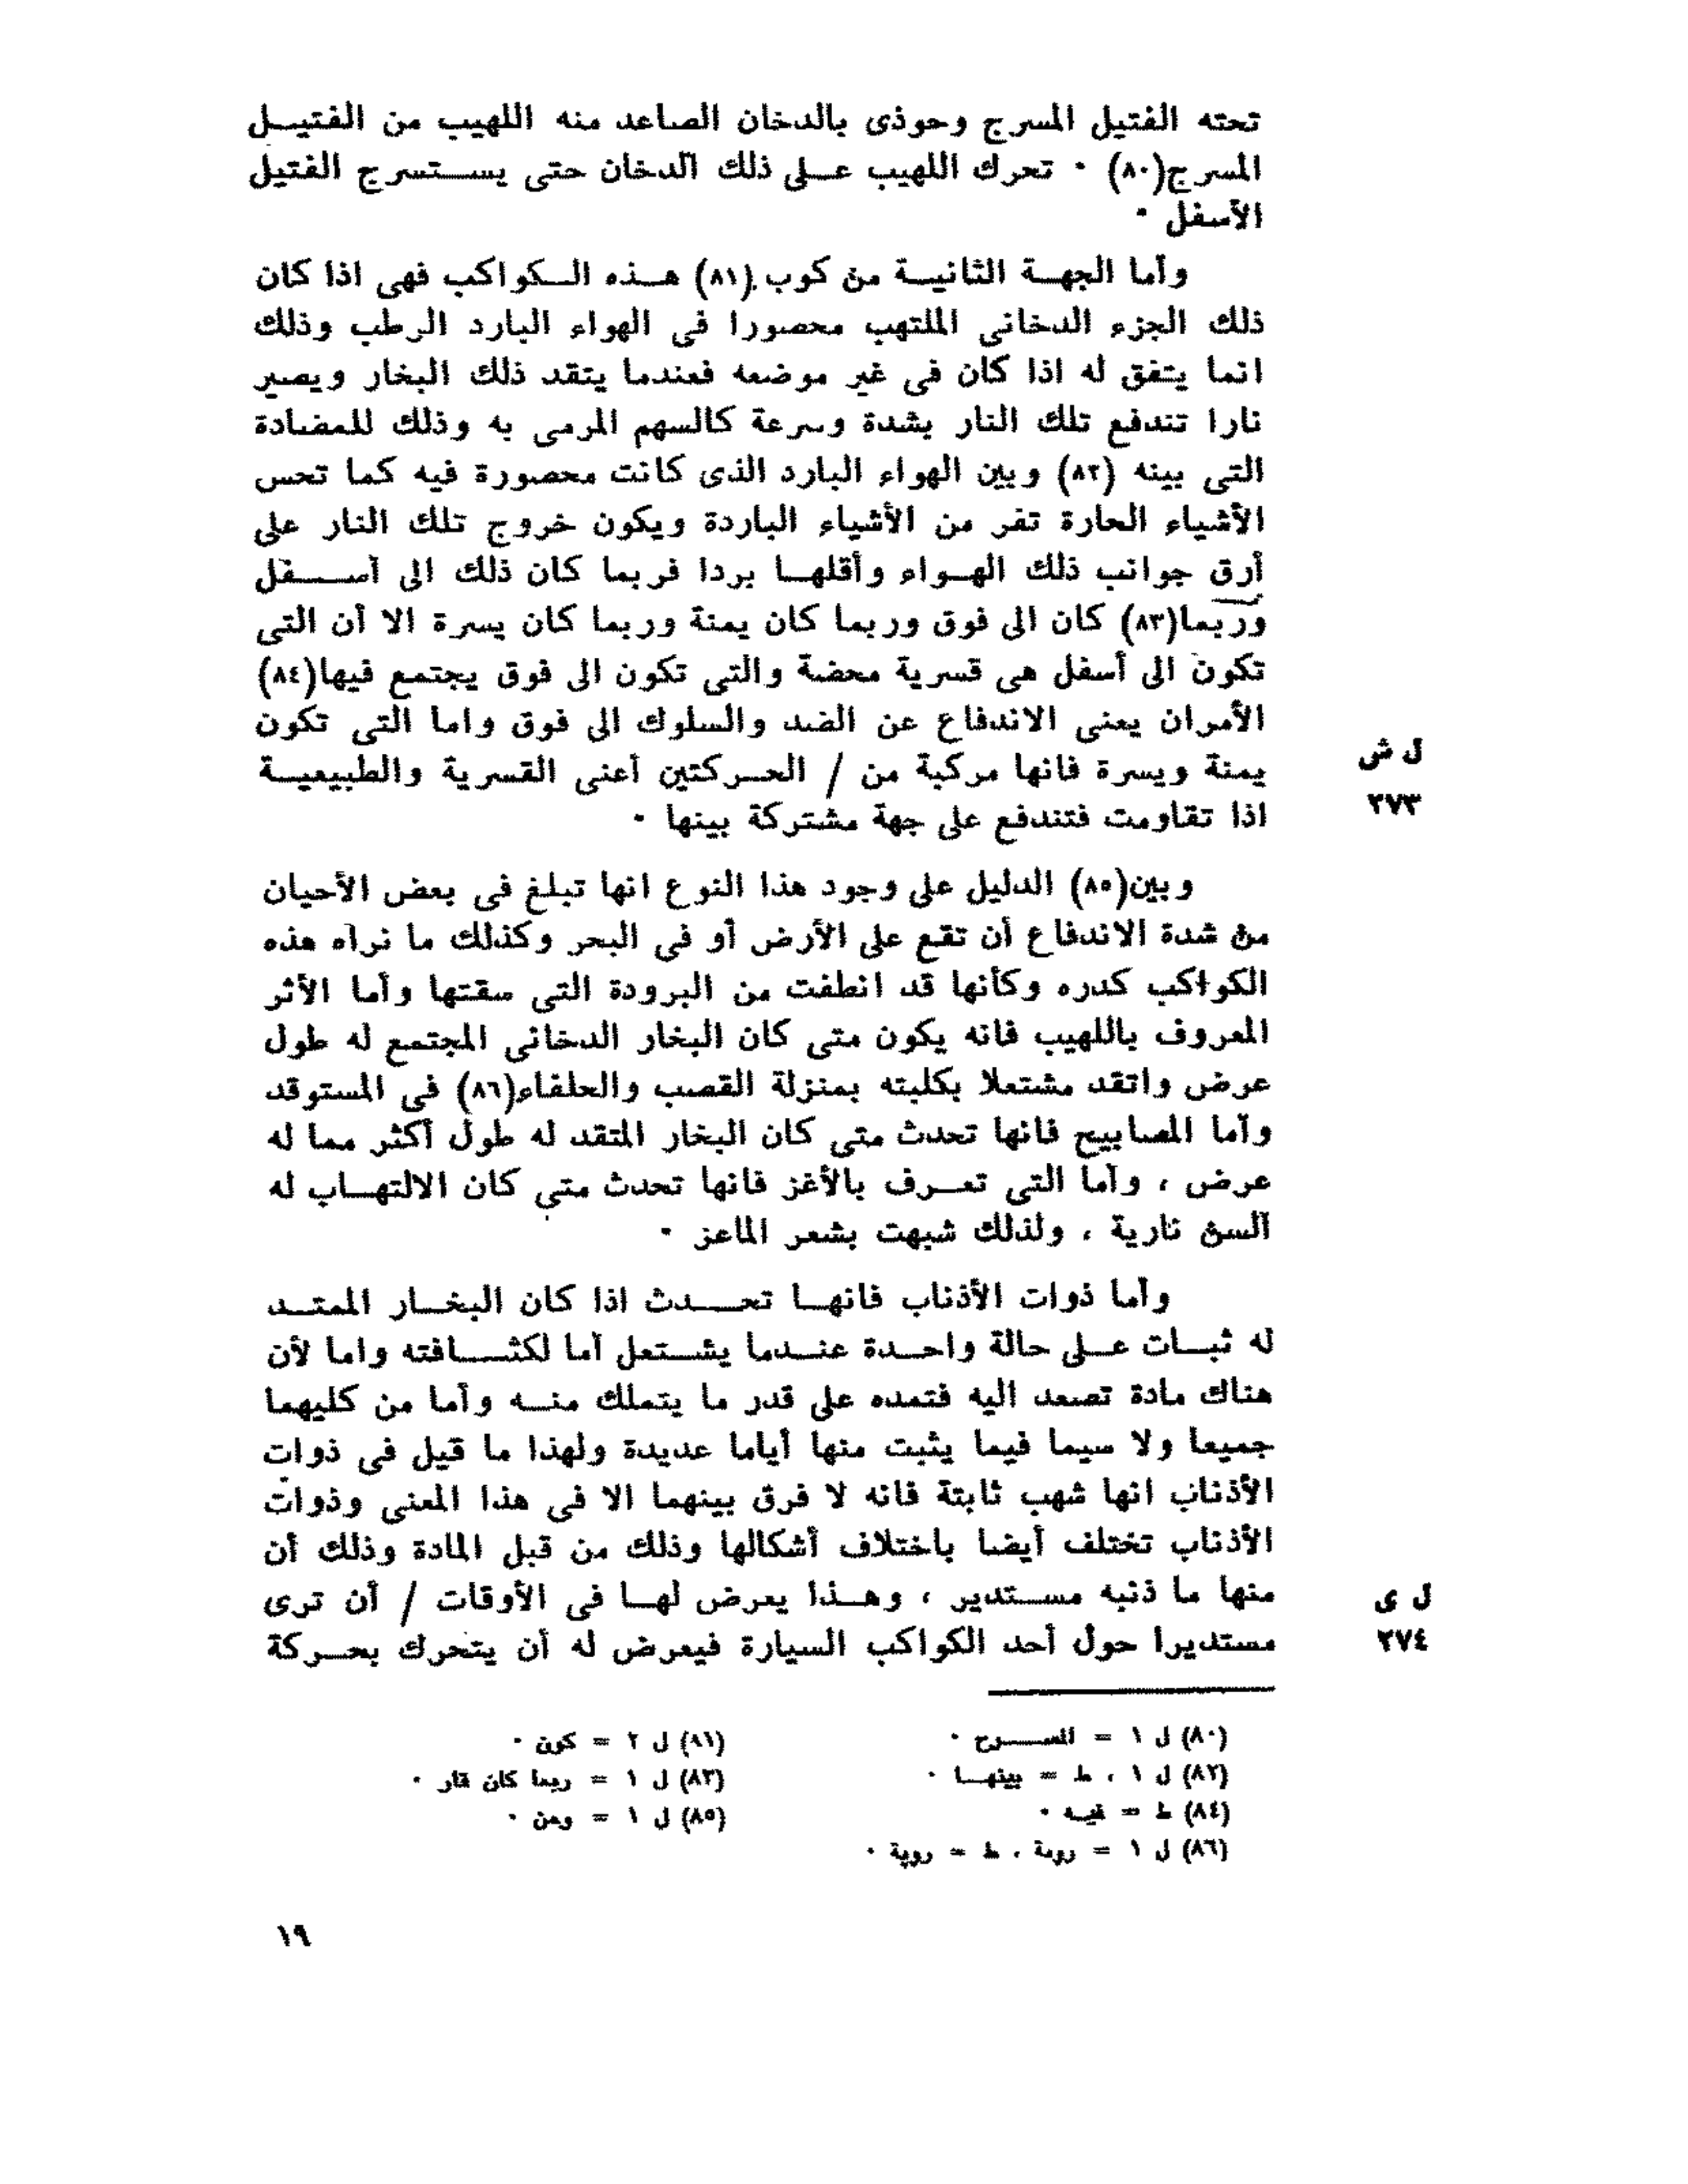 تحته الفتيل المسرج وحوذى بالدخان الصاعد منه اللهيب من الفتيل
المسرج(٨٠) · تحرك اللهيب على ذلك الدخان حتى يستسرج الفتيل
الأسفل ·
وأما الجهة الثانية من كوب (٨١) هذه الكواكب فهى اذا كان
ذلك الجزء الدخانى الملتهب محصورا فى الهواء البارد الرطب وذلك
انما يتفق له اذا كان فى غير موضعه فعندما يتقد ذلك البخار ويصير
نارا تندفع تلك النار بشدة وسرعة كالسهم المرمى به وذلك للمضادة
التى بينه (٨٢) وبين الهواء البارد الذى كانت محصورة فيه كما تحس
الأشياء الحارة تفر من الأشياء الباردة ويكون خروج تلك النار على
أرق جوانب ذلك الهواء وأقلها بردا فربما كان ذلك الى أسفل
وربما(٨٣) كان الى فوق وربما كان يمنة وربما كان يسرة الا أن التى
تكون الى أسفل هى قسرية محضة والتى تكون الى فوق يجتمع فيها(٨٤)
الأمران يعنى الاندفاع عن الضد والسلوك الى فوق واما التى تكون
يمنة ويسرة فانها مركبة من / الحركتين أعنى القسرية والطبيعية
ل ش
٢٧٣
اذا تقاومت فتندفع على جهة مشتركة بينها ·
وبين(٨٥) الدليل على وجود هذا النوع انها تبلغ فى بعض الأحيان
من شدة الاندفاع أن تقع على الأرض أو فى البحر وكذلك ما نراه هذه
الكواكب كدره وكأنها قد انطفت من البرودة التى سقتها وأما الأثر
المعروف باللهيب فانه يكون متى كان البخار الدخانى المجتمع له طول
عرض واتقد مشتعلا بكليته بمنزلة القصب والحلفاء(٨٦) فى المستوقد
وأما المصابيح فانها تحدث متى كان البخار المتقد له طول أكثر مما له
عرض ، وأما التى تعرف بالأغز فانها تحدث متى كان الالتهاب له
ألسن نارية ، ولذلك شبهت بشعر الماعز ·
وأما ذوات الأذناب فانها تحدث اذا كان البخار الممتد
له ثبات على حالة واحدة عندما يشتعل أما لكثافته واما لأن
هناك مادة تصعد اليه فتمده على قدر ما يتملك منه وأما من كليهما
جميعا ولا سيما فيما يثبت منها أياما عديدة ولهذا ما قيل فى ذوات
الأذناب انها شهب ثابتة فانه لا فرق بينهما الا فى هذا المعنى وذوات
الأذناب تختلف أيضا باختلاف أشكالها وذلك من قبل المادة وذلك أن
منها ما ذنبه مستدير ، وهذا يعرض لها فى الأوقات / أن ترى
ل ى
٢٧٤
مستديرا حول أحد الكواكب السيارة فيعرض له أن يتحرك بحركة
(٨٠) ل ١ = المسرح ·
(٨١) ل ٢ = كون ·
(٨٢) ل ١ ، ط = بينها ·
(٨٣) ل ١ = ربما كان قار ·
(٨٤) ط = فيه ·
(٨٥) ل ١ = ومن ·
(٨٦) ل ١ = رومة ، ط = روية ·
١٩